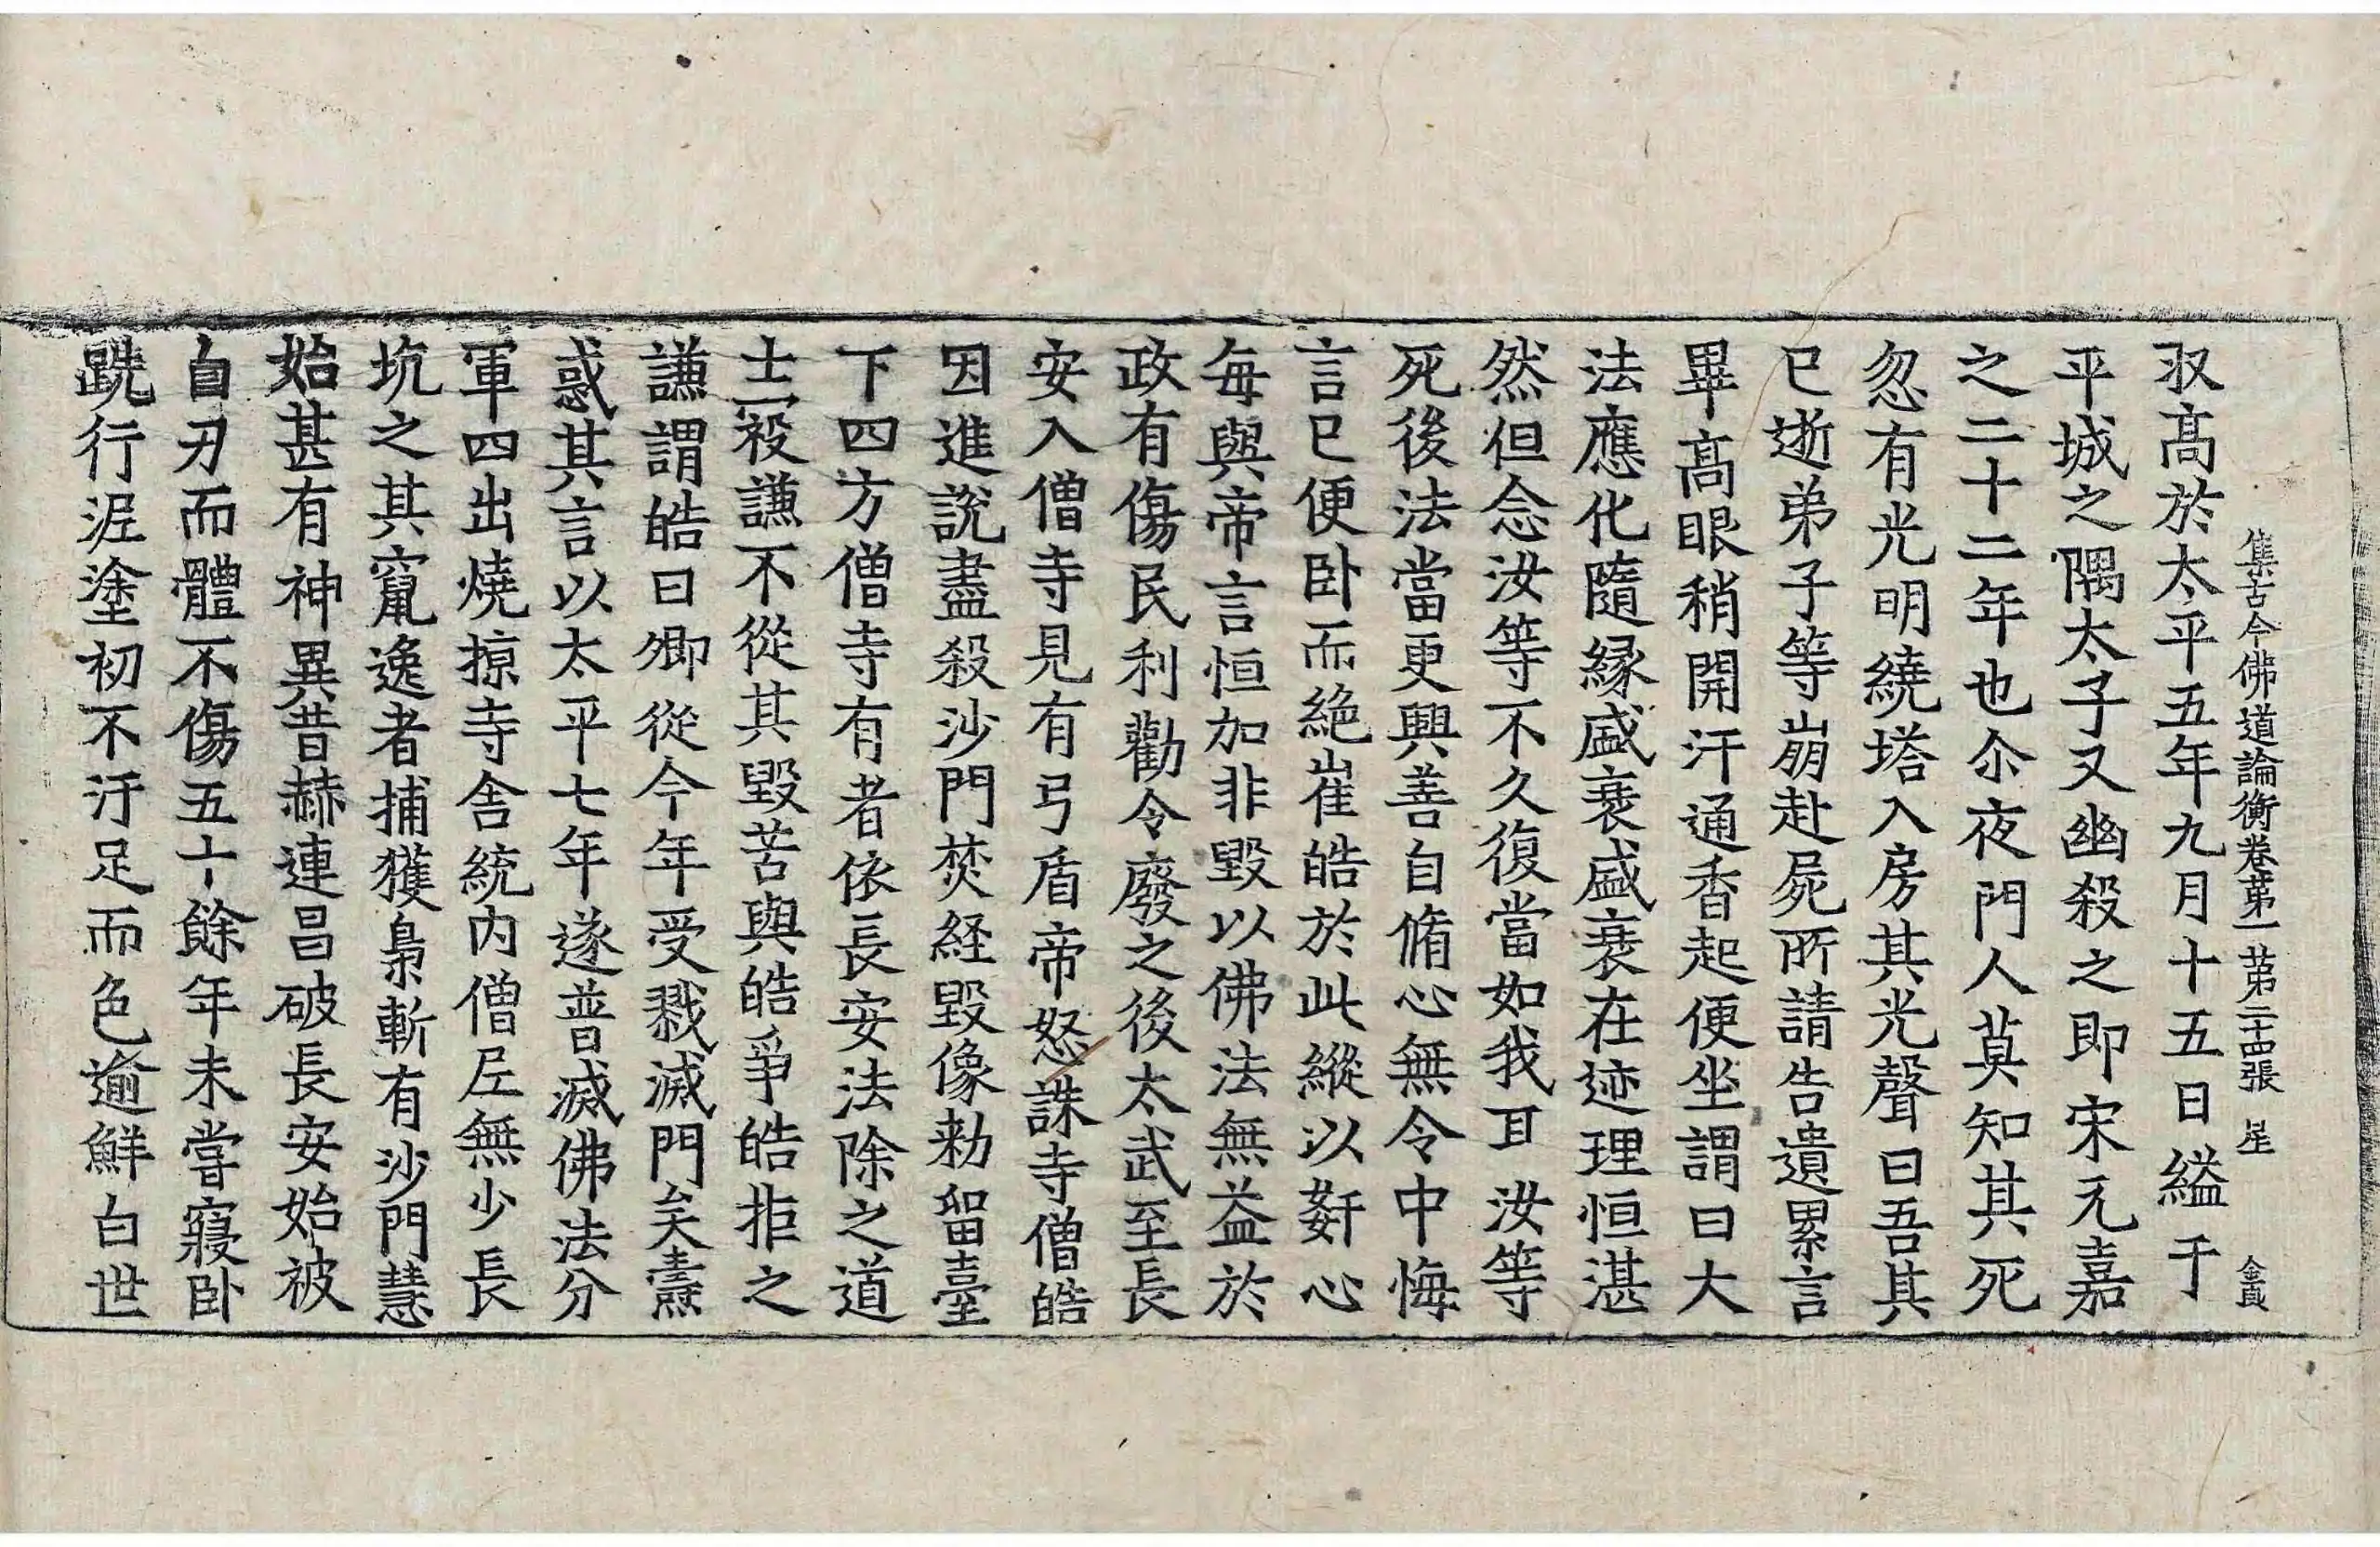 集古今佛道論衡卷第一 第二十四張 星 金員
収髙於太平五年九月十五日縊于
平城之隅太子又幽殺之即宋元嘉
之二十二年也尒夜門人莫知其死
忽有光明繞塔入房其光聲曰吾其
已逝弟子等崩赴屍所請告遺累言
畢髙眼稍開汗通香起便坐謂曰大
法應化隨縁盛衰盛衰在迹理恒湛
然但念汝等不久復當如我耳汝等
死後法當更興善自脩心無令中悔
言已便卧而絶崔皓於此縱以姧心
每與帝言恒加非毀以佛法無益於
政有傷民利勸令廢之後太武至長
安入僧寺見有弓盾帝怒誅寺僧皓
因進説盡殺沙門焚経毀像勅留臺
下四方僧寺有者依長安法除之道
士䆠謙不從其毀苦與皓爭皓拒之
謙謂皓曰卿從今年受戮滅門矣燾
惑其言以太平七年遂普滅佛法分
軍四出燒掠寺舎統内僧尼無少長
坑之其竄逸者捕獲梟斬有沙門慧
始甚有神異昔赫連昌破長安始被
自刃而體不傷五十餘年未甞寢卧
跣行泥塗初不汙足而色逾鮮白世